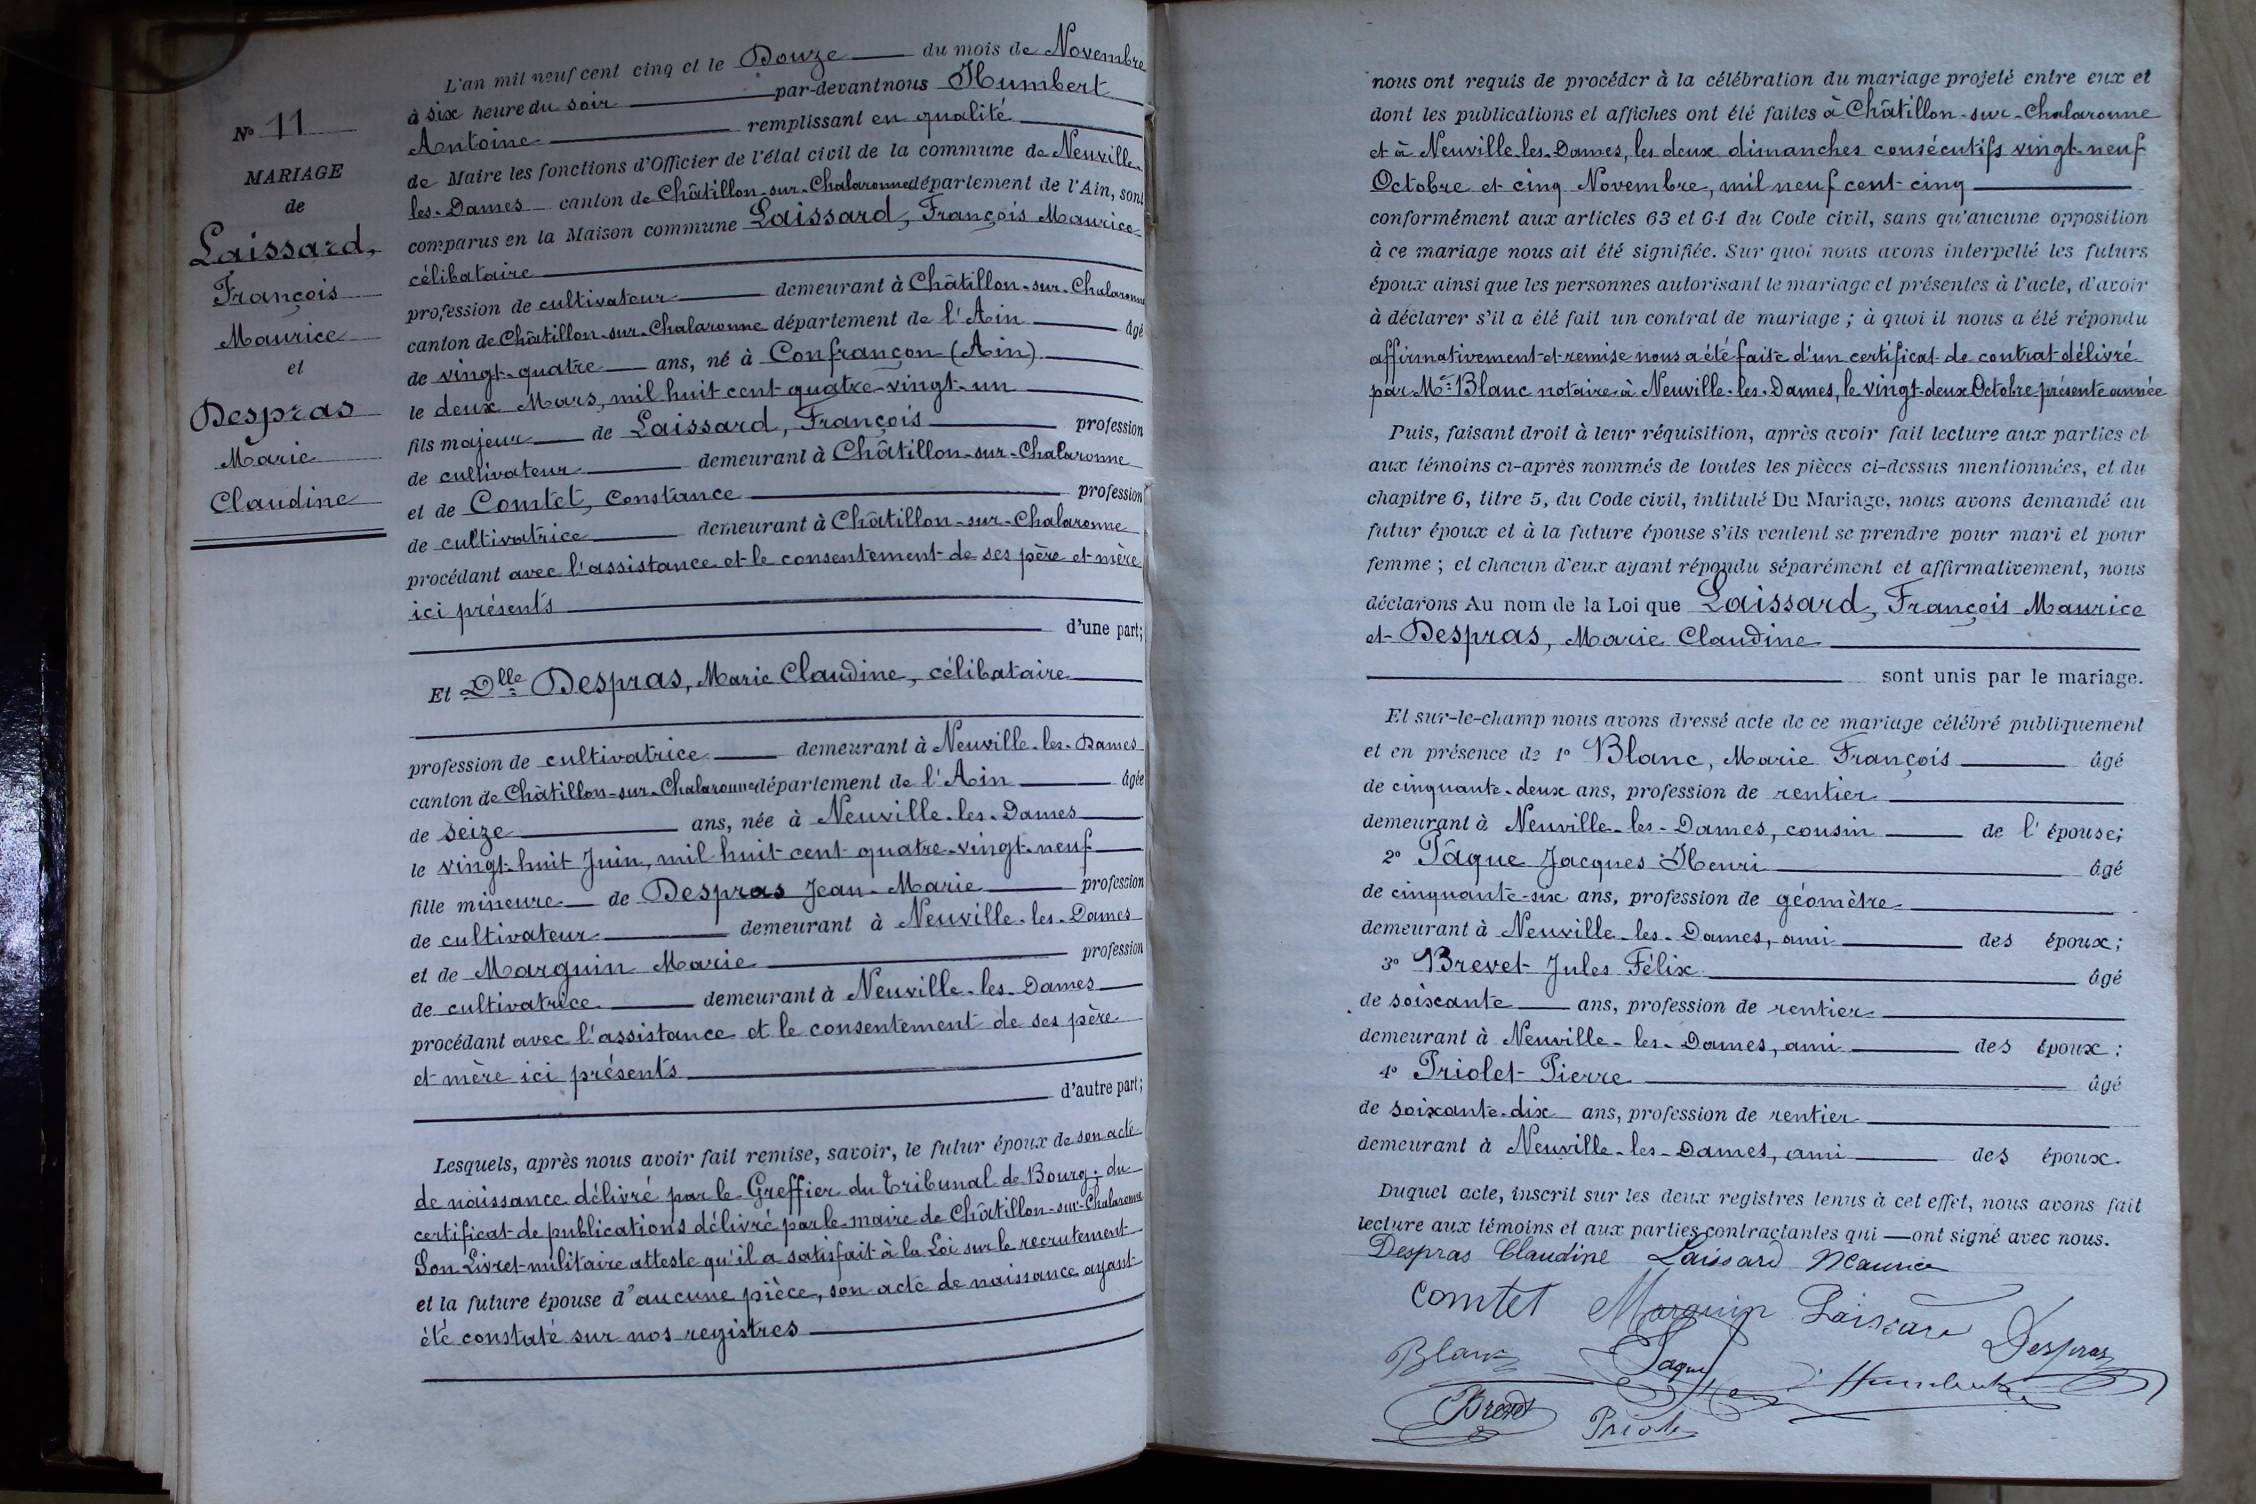 N° 11
MARIAGE
de
Laissard,
François
Maurice
et
Despras
Marie
Claudine
L'an mil neuf cent cinq et le Douze du mois de Novembre
à six heure du soir par-devant nous Humbert
Antoine remplissant en qualité
de Maire les fonctions d'Officier de l'état civil de la commune de Neuville-
les-Dames canton de Châtillon-sur-Chalaronne département de l'Ain, sont
comparus en la Maison commune Laissard, François Maurice
célibataire
profession de cultivateur demeurant à Châtillon-sur-Chalaronne
canton de Châtillon-sur-Chalaronne département de l'Ain âgé
de vingt-quatre ans, né à Confrançon (Ain)
le deux Mars, mil huit cent quatre-vingt-un
fils majeur de Laissard, François profession
de cultivateur demeurant à Châtillon-sur-Chalaronne
et de Comtet, Constance profession
de cultivatrice demeurant à Châtillon-sur-Chalaronne
procédant avec l'assistance et le consentement de ses père et mère
ici présents
d'une part;
Et Dlle Despras, Marie Claudine, célibataire
profession de cultivatrice demeurant à Neuville-les-Dames
canton de Châtillon-sur-Chalaronne département de l'Ain âgée
de seize ans, née à Neuville-les-Dames
le vingt-huit Juin, mil huit cent quatre-vingt-neuf
fille mineure de Despras Jean-Marie profession
de cultivateur demeurant à Neuville-les-Dames
et de Marguin Marie profession
de cultivatrice demeurant à Neuville-les-Dames
procédant avec l'assistance et le consentement de ses père
et mère ici présents
d'autre part;
Lesquels, après nous avoir fait remise, savoir, le futur époux de son acte
de naissance délivré par le Greffier du tribunal de Bourg; du
certificat de publications délivré par le maire de Châtillon-sur-Chalaronne
Son Livret militaire atteste qu'il a satisfait à la Loi sur le recrutement
et la future épouse d'aucune pièce, son acte de naissance ayant
été constaté sur nos registres
nous ont requis de procéder à la célébration du mariage projeté entre eux et
dont les publications et affiches ont été faites à Châtillon-sur-Chalaronne
et à Neuville-les-Dames, les deux dimanches consécutifs vingt-neuf
Octobre et cinq Novembre, mil neuf cent cinq
conformément aux articles 63 et 64 du Code civil, sans qu'aucune opposition
à ce mariage nous ait été signifiée. Sur quoi nous avons interpellé les futurs
époux ainsi que les personnes autorisant le mariage et présentes à l'acte, d'avoir
à déclarer s'il a été fait un contrat de mariage; à quoi il nous a été répondu
affirmativement et remise nous a été faite d'un certificat de contrat délivré
par Me Blanc notaire à Neuville-les-Dames, le vingt-deux Octobre présente année
Puis, faisant droit à leur réquisition, après avoir fait lecture aux parties et
aux témoins ci-après nommés de toutes les pièces ci-dessus mentionnées, et du
chapitre 6, titre 5, du Code civil, intitulé Du Mariage, nous avons demandé au
futur époux et à la future épouse s'ils veulent se prendre pour mari et pour
femme; et chacun d'eux ayant répondu séparément et affirmativement, nous
déclarons Au nom de la Loi que Laissard, François Maurice
et Despras, Marie Claudine
sont unis par le mariage.
Et sur-le-champ nous avons dressé acte de ce mariage célébré publiquement
et en présence de 1° Blanc, Marie François âgé
de cinquante-deux ans, profession de rentier
demeurant à Neuville-les-Dames, cousin de l'épouse;
2° Pâque Jacques Henri âgé
de cinquante-six ans, profession de géomètre
demeurant à Neuville-les-Dames, ami des époux;
3° Brevet Jules Félix âgé
de soixante ans, profession de rentier
demeurant à Neuville-les-Dames, ami des époux;
4° Priolet Pierre âgé
de soixante-dix ans, profession de rentier
demeurant à Neuville-les-Dames, ami des époux.
Duquel acte, inscrit sur les deux registres tenus à cet effet, nous avons fait
lecture aux témoins et aux parties contractantes qui ont signé avec nous.
Despras Claudine Laissard Maurice
Comtet Marguin Laissard Despras
Blanc Paque Humbert
Brevet Priolet